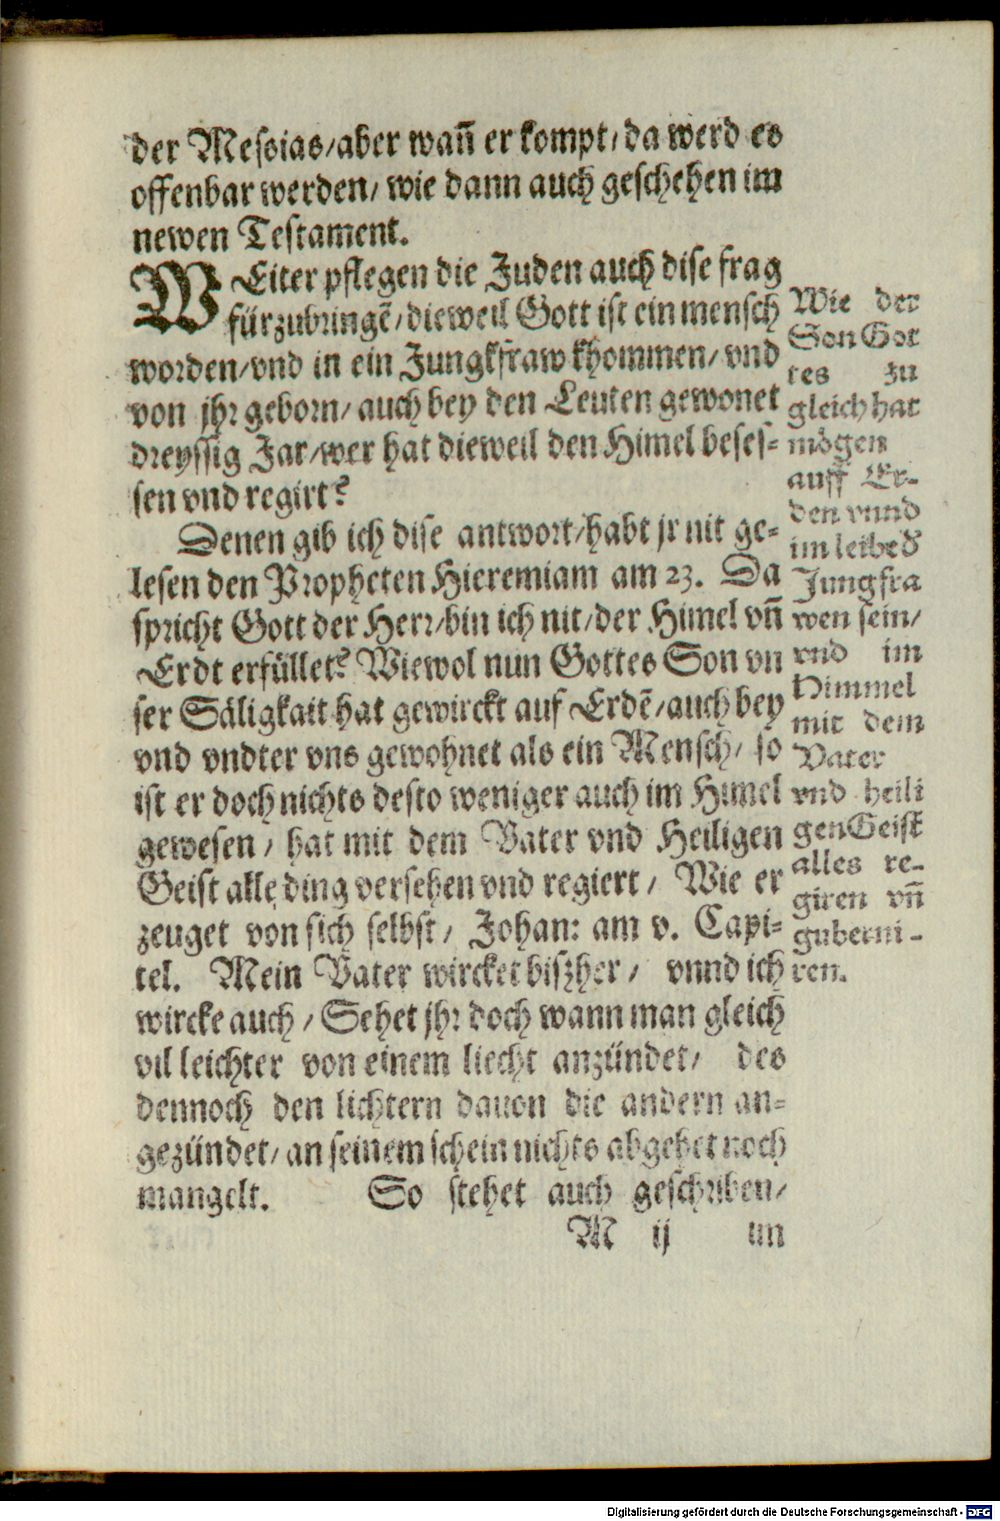 der Messias/aber wañ er kompt/da werd es
offenbar werden/ wie dann auch geschehen im
newen Testament.
WEiter pflegen die Juden auch dise frag
fürzubringẽ/dieweil Gott ist ein mensch
worden/vnd in ein Jungkfraw khommen/ vnd
von jhr geborn/ auch bey den Leuten gewonet
dreyssig Jar/wer hat dieweil den Himel beses=
sen vnd regirt?
Denen gib ich dise antwort/habt jr nit ge=
lesen den Propheten Hieremiam am 23. Da
spricht Gott der Herr/bin ich nit/der Himel vñ
Erdt erfüllet? Wiewol nun Gottes Son vn
ser Säligkait hat gewirckt auf Erdẽ/auch bey
vnd vndter vns gewohnet als ein Mensch/ so
ist er doch nichts desto weniger auch im Himel
gewesen / hat mit dem Vater vnd Heiligen
Geist alle ding versehen vnd regiert / Wie er
zeuget von sich selbst / Johan: am v. Capi=
tel. Mein Vater wircket biszher / vnnd ich
wircke auch / Sehet jhr doch wann man gleich
vil leichter von einem liecht anzündet/ des
dennoch den lichtern dauon die andern an=
gezündet/ an seinem schein nichts abgehet noch
mangelt. So stehet auch geschriben/
M ij im
Wie der
Son Got
tes zu
gleich hat
mögen
auff Er-
den vnnd
im leib d̕
Jungfra
wen sein/
vnd im
Himmel
mit dem
Vater
vnd heili
gen Geist
alles re-
giren vñ
guberni-
ren.
Digitalisierung gefördert durch die Deutsche Forschungsgemeinschaft - DFG